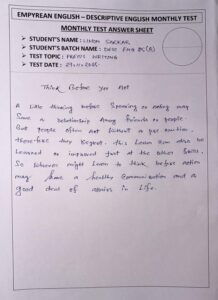 EMPYREAN ENGLISH – DESCRIPTIVE ENGLISH MONTHLY TEST
MONTHLY TEST ANSWER SHEET
➤ STUDENT'S NAME : LIKON SARKAR
➤ STUDENT'S BATCH NAME : DESC ENG BC(B)
➤ TEST TOPIC : PRECIS WRITING
➤ TEST DATE : 29.11.2025
Think Before You Act
A little thinking before speaking or acting may
save a relationship among friends or people.
But people often act without a pre
therefore they regret. This can also be
learned or improved just at the other
So whoever might learn to think before action
may have a healthy communication and a
good deal of in life.